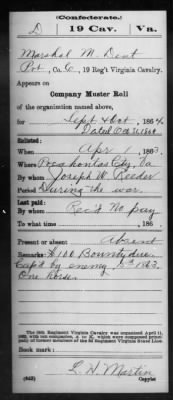 (Confederate.)
D 19 Cav. Va.
Marshal M. Dent
Pvt, Co. C, 19 Reg't Virginia Cavalry.
Appears on
Company Muster Roll
of the organization named above,
for Sept & Oct, 1864.
Dated Oct 31 1864
Enlisted:
When Apr 1, 1863
Where Pocahontas Co, Va
By whom Joseph W. Reeder
Period During the war
Last paid:
By whom Rec'd No pay
To what time , 186
Present or absent Absent
Remarks: $100 Bounty due
Capt'd by enemy 1863.
One horse.
The 19th Regiment Virginia Cavalry was organized April 11, 1863, with ten companies, A to K, which were composed principally of former members of the 3d Regiment Virginia State Line.
Book mark:
L. H. Martin
(642) Copyist